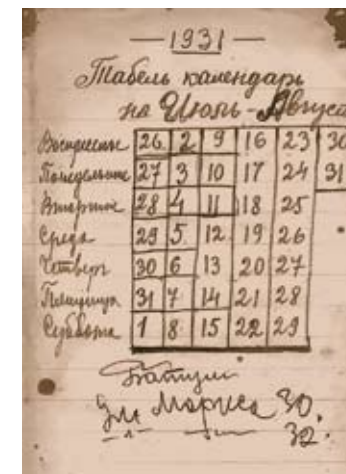 — 1931 —
Табель календарь
на Июль-Август
Воскресенье 26 2 9 16 23 30
Понедельник 27 3 10 17 24 31
Вторник 28 4 11 18 25
Среда 29 5 12 19 26
Четверг 30 6 13 20 27
Пятница 31 7 14 21 28
Суббота 1 8 15 22 29
Батуми
ул Маркса 30.
32.